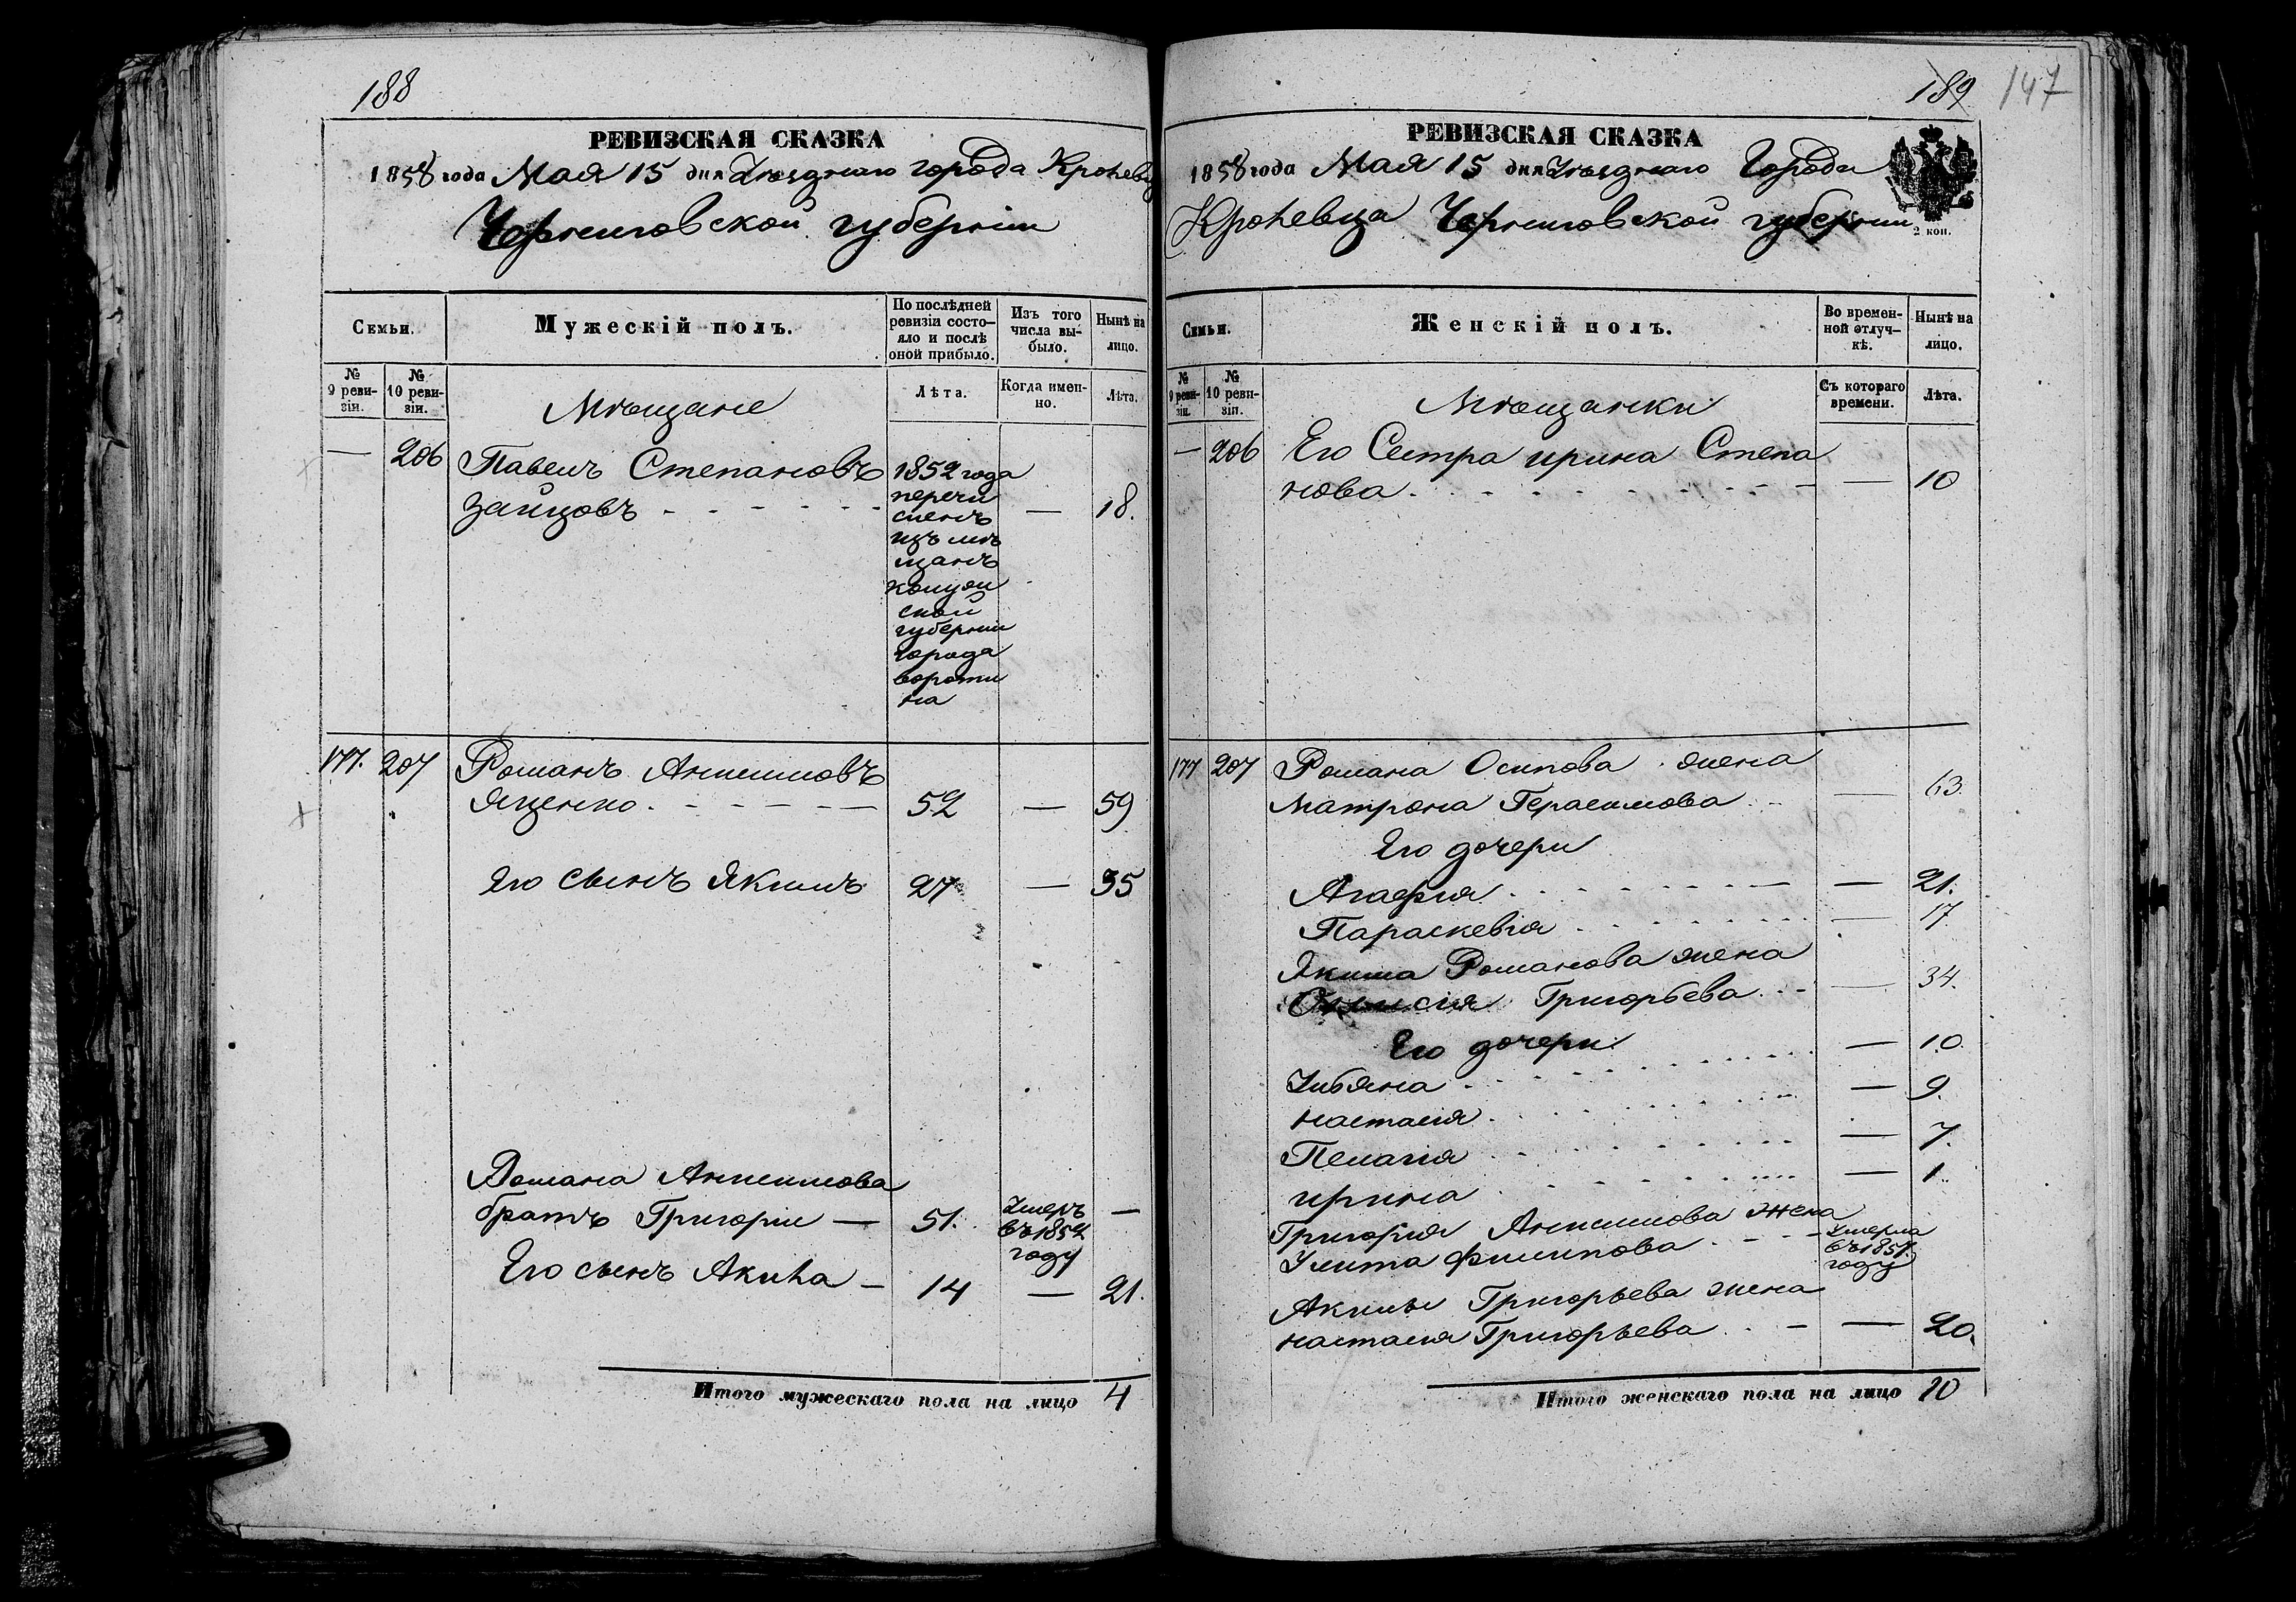 188
РЕВИЗСКАЯ СКАЗКА
1858 года Мая 15 дня Уѣзднаго города Кролевца
Черниговской губерніи
Семьи.
Мужескій полъ.
По послѣдней ревизіи состо-
яло и послѣ оной прибыло.
Изъ того числа вы-
было.
Нынѣ на лицо.
№ 9 реви-
зіи.
№ 10 реви-
зіи.
Мѣщане
Лѣта.
Когда имен-
но.
Лѣта.
— 206 Павелъ Степановъ
Зайцовъ - - - - - - — 18.
1852 года
перечи
сленъ
изъ мѣ
щанъ
губерніи
города
177. 207 Романъ Анисимовъ
Яценко. - - - - — 52 — 59
Его сынъ Якимъ 27 — 35
Романа Анисимова
братъ Григорій — 51. Умеръ —
въ 1852
году
Его сынъ Акила — 14 — 21.
Итого мужескаго пола на лицо 4
189 147
РЕВИЗСКАЯ СКАЗКА
1858 года Мая 15 дня Уѣзднаго Города
Кролевца Черниговской губерніи
2 коп.
Семьи.
Женскій полъ.
Во времен-
ной отлуч-
кѣ.
Нынѣ на лицо.
№ 9 реви-
зіи.
№ 10 реви-
зіи.
Мѣщанки
Съ котораго времени.
Лѣта.
— 206 Его Сестра ирина Степа
нова. - - - - - - — 10
177 207 Романа Осипова жена
Матрона Герасимова - — 63.
Его дочери
Агафія - - - - — 21.
Параскевія - - - - — 17.
Якима Романова жена
Григорьева. - - — 34.
Его дочери — 10.
Ульяна - - - - — 9.
настасія - - - -
Пелагія - - - - — 7.
ирина - - - - — 1.
Григорія Анисимова жена
Улита Филипова - - - Умерла
въ 1851.
году
Акилы Григорьева жена
настасія Григорьева. - — 20.
Итого женскаго пола на лицо 10